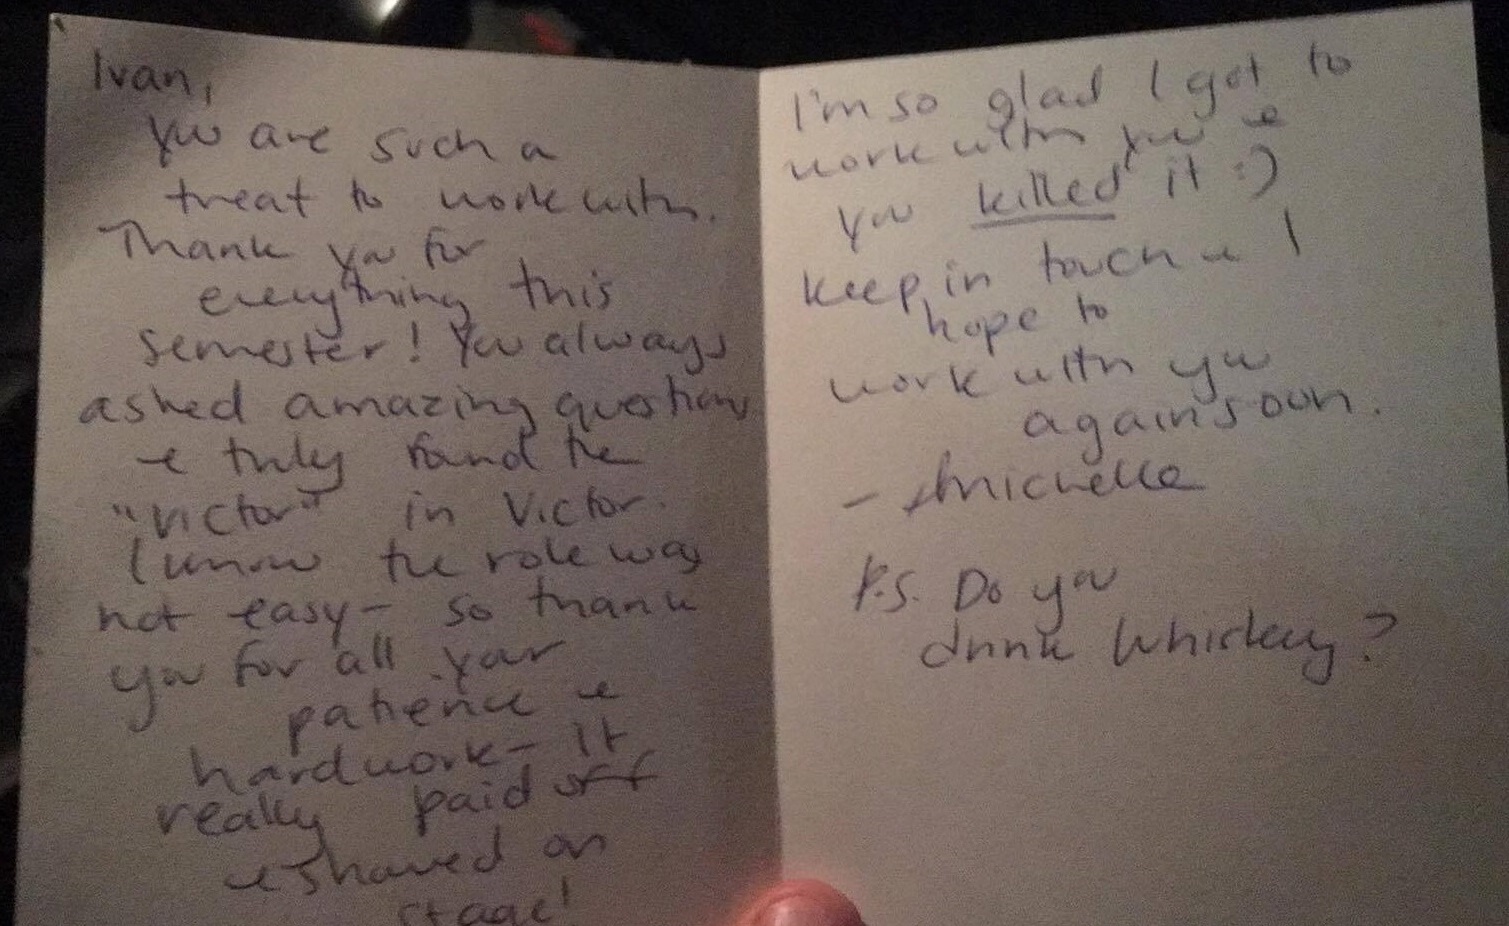 Ivan,
You are such a
treat to work with.
Thank you for
everything this
semester! You always
asked amazing questions
& truly found the
"Victor" in Victor.
I know the role was
not easy - so thank
you for all your
patience &
hardwork - it
really paid off
& showed on
stage!
I'm so glad I got to
work with you &
you killed it :)
Keep in touch & I
hope to
work with you
again soon.
- Michelle
P.S. Do you
drink whiskey?